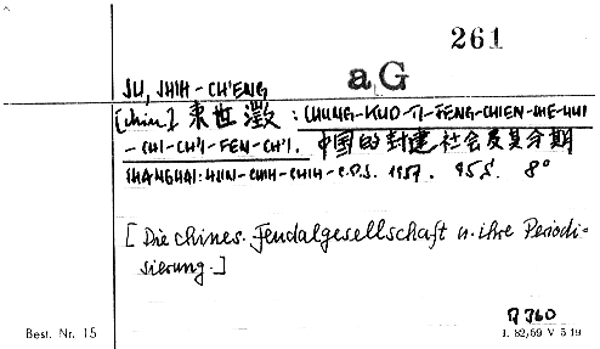 261
aG
SU, SHIH-CH'ENG
[chin.] 束世澂 : CHUNG-KUO-TI-FENG-CHIEN-SHE-HUI
-CHI-CH'I-FEN-CH'I. 中国的封建社会及其分期
SHANGHAI: HSIN-CHIH-CHIH- 1957. 95 S. 8°
[Die chines. Feudalgesellschaft u. ihre Periodi-
sierung.]
Best. Nr. 15